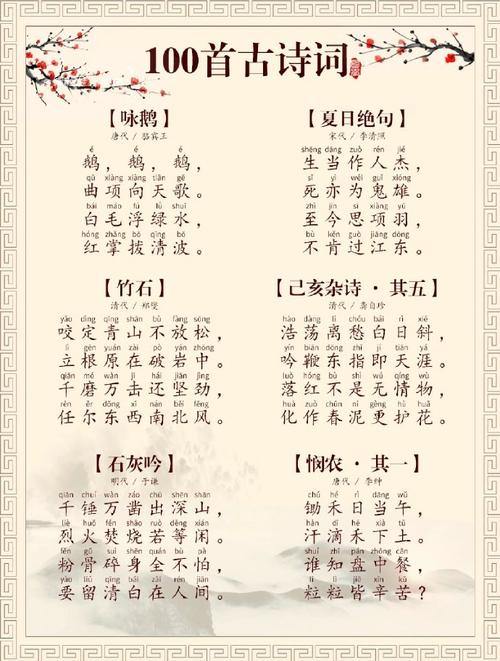 100首古诗词
【咏鹅】
唐代 / 骆宾王
é é é
鹅，鹅，鹅，
qū xiàng xiàng tiān gē
曲项向天歌。
bái máo fú lǜ shuǐ
白毛浮绿水，
hóng zhǎng bō qīng bō
红掌拨清波。
【夏日绝句】
宋代 / 李清照
shēng dāng zuò rén jié
生当作人杰，
sǐ yì wéi guǐ xióng
死亦为鬼雄。
zhì jīn sī xiàng yǔ
至今思项羽，
bù kěn guò jiāng dōng
不肯过江东。
【竹石】
清代 / 郑燮
yǎo dìng qīng shān bù fàng sōng
咬定青山不放松，
lì gēn yuán zài pò yán zhōng
立根原在破岩中。
qiān mó wàn jī hái jiān jìn
千磨万击还坚劲，
rèn ěr dōng xī nán běi fēng
任尔东西南北风。
【己亥杂诗·其五】
清代 / 龚自珍
hào dàng lí chóu bái rì xié
浩荡离愁白日斜，
yín biān dōng zhǐ jí tiān yá
吟鞭东指即天涯。
luò hóng bú shì wú qíng wù
落红不是无情物，
huà zuò chūn ní gèng hù huā
化作春泥更护花。
【石灰吟】
明代 / 于谦
qiān chuí wàn záo chū shēn shān
千锤万凿出深山，
liè huǒ fén shāo ruò děng xián
烈火焚烧若等闲。
fěn gǔ suì shēn quán bù pà
粉骨碎身全不怕，
yào liú qīng bái zài rén jiān
要留清白在人间。
【悯农·其一】
唐代 / 李绅
chú hé rì dāng wǔ
锄禾日当午，
hàn dī hé xià tǔ
汗滴禾下土。
shuí zhī pán zhōng cān
谁知盘中餐，
lì lì jiē xīn kǔ
粒粒皆辛苦？